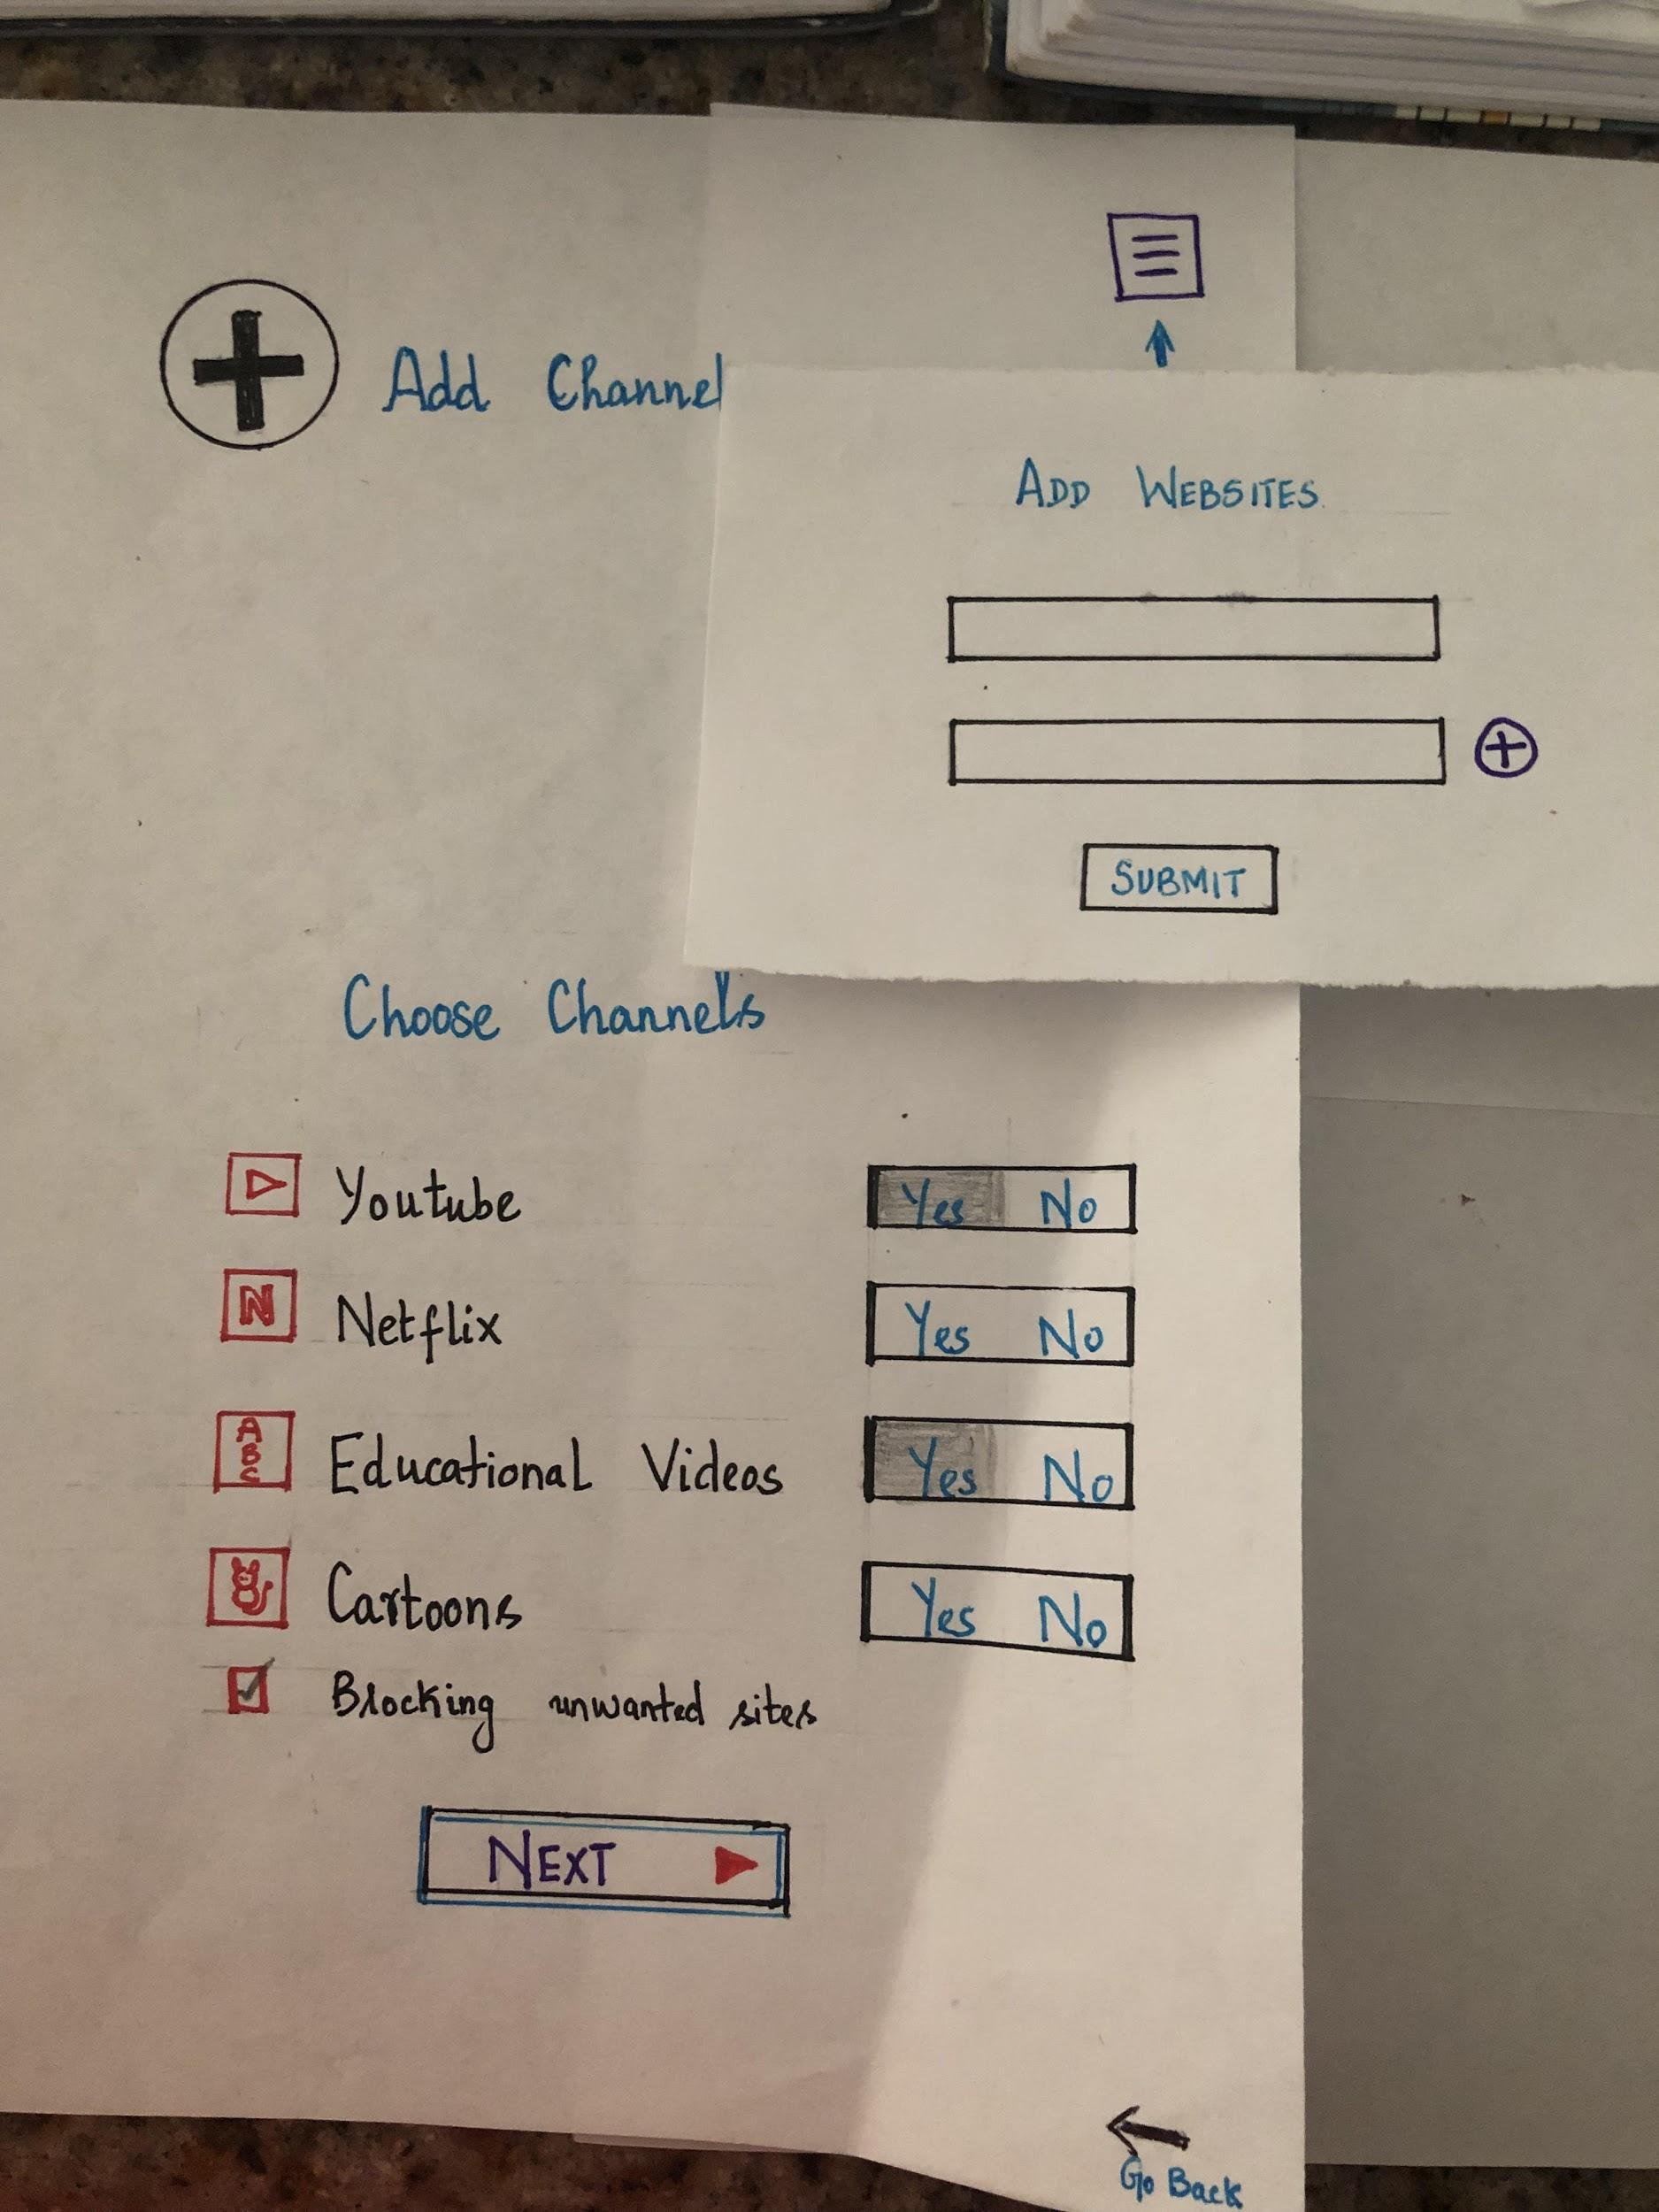 Add Channel
ADD WEBSITES
SUBMIT
Choose Channels
Youtube Yes No
N Netflix Yes No
A
B
C
Educational Videos Yes No
Cartoons Yes No
Blocking unwanted sites
NEXT
Go Back